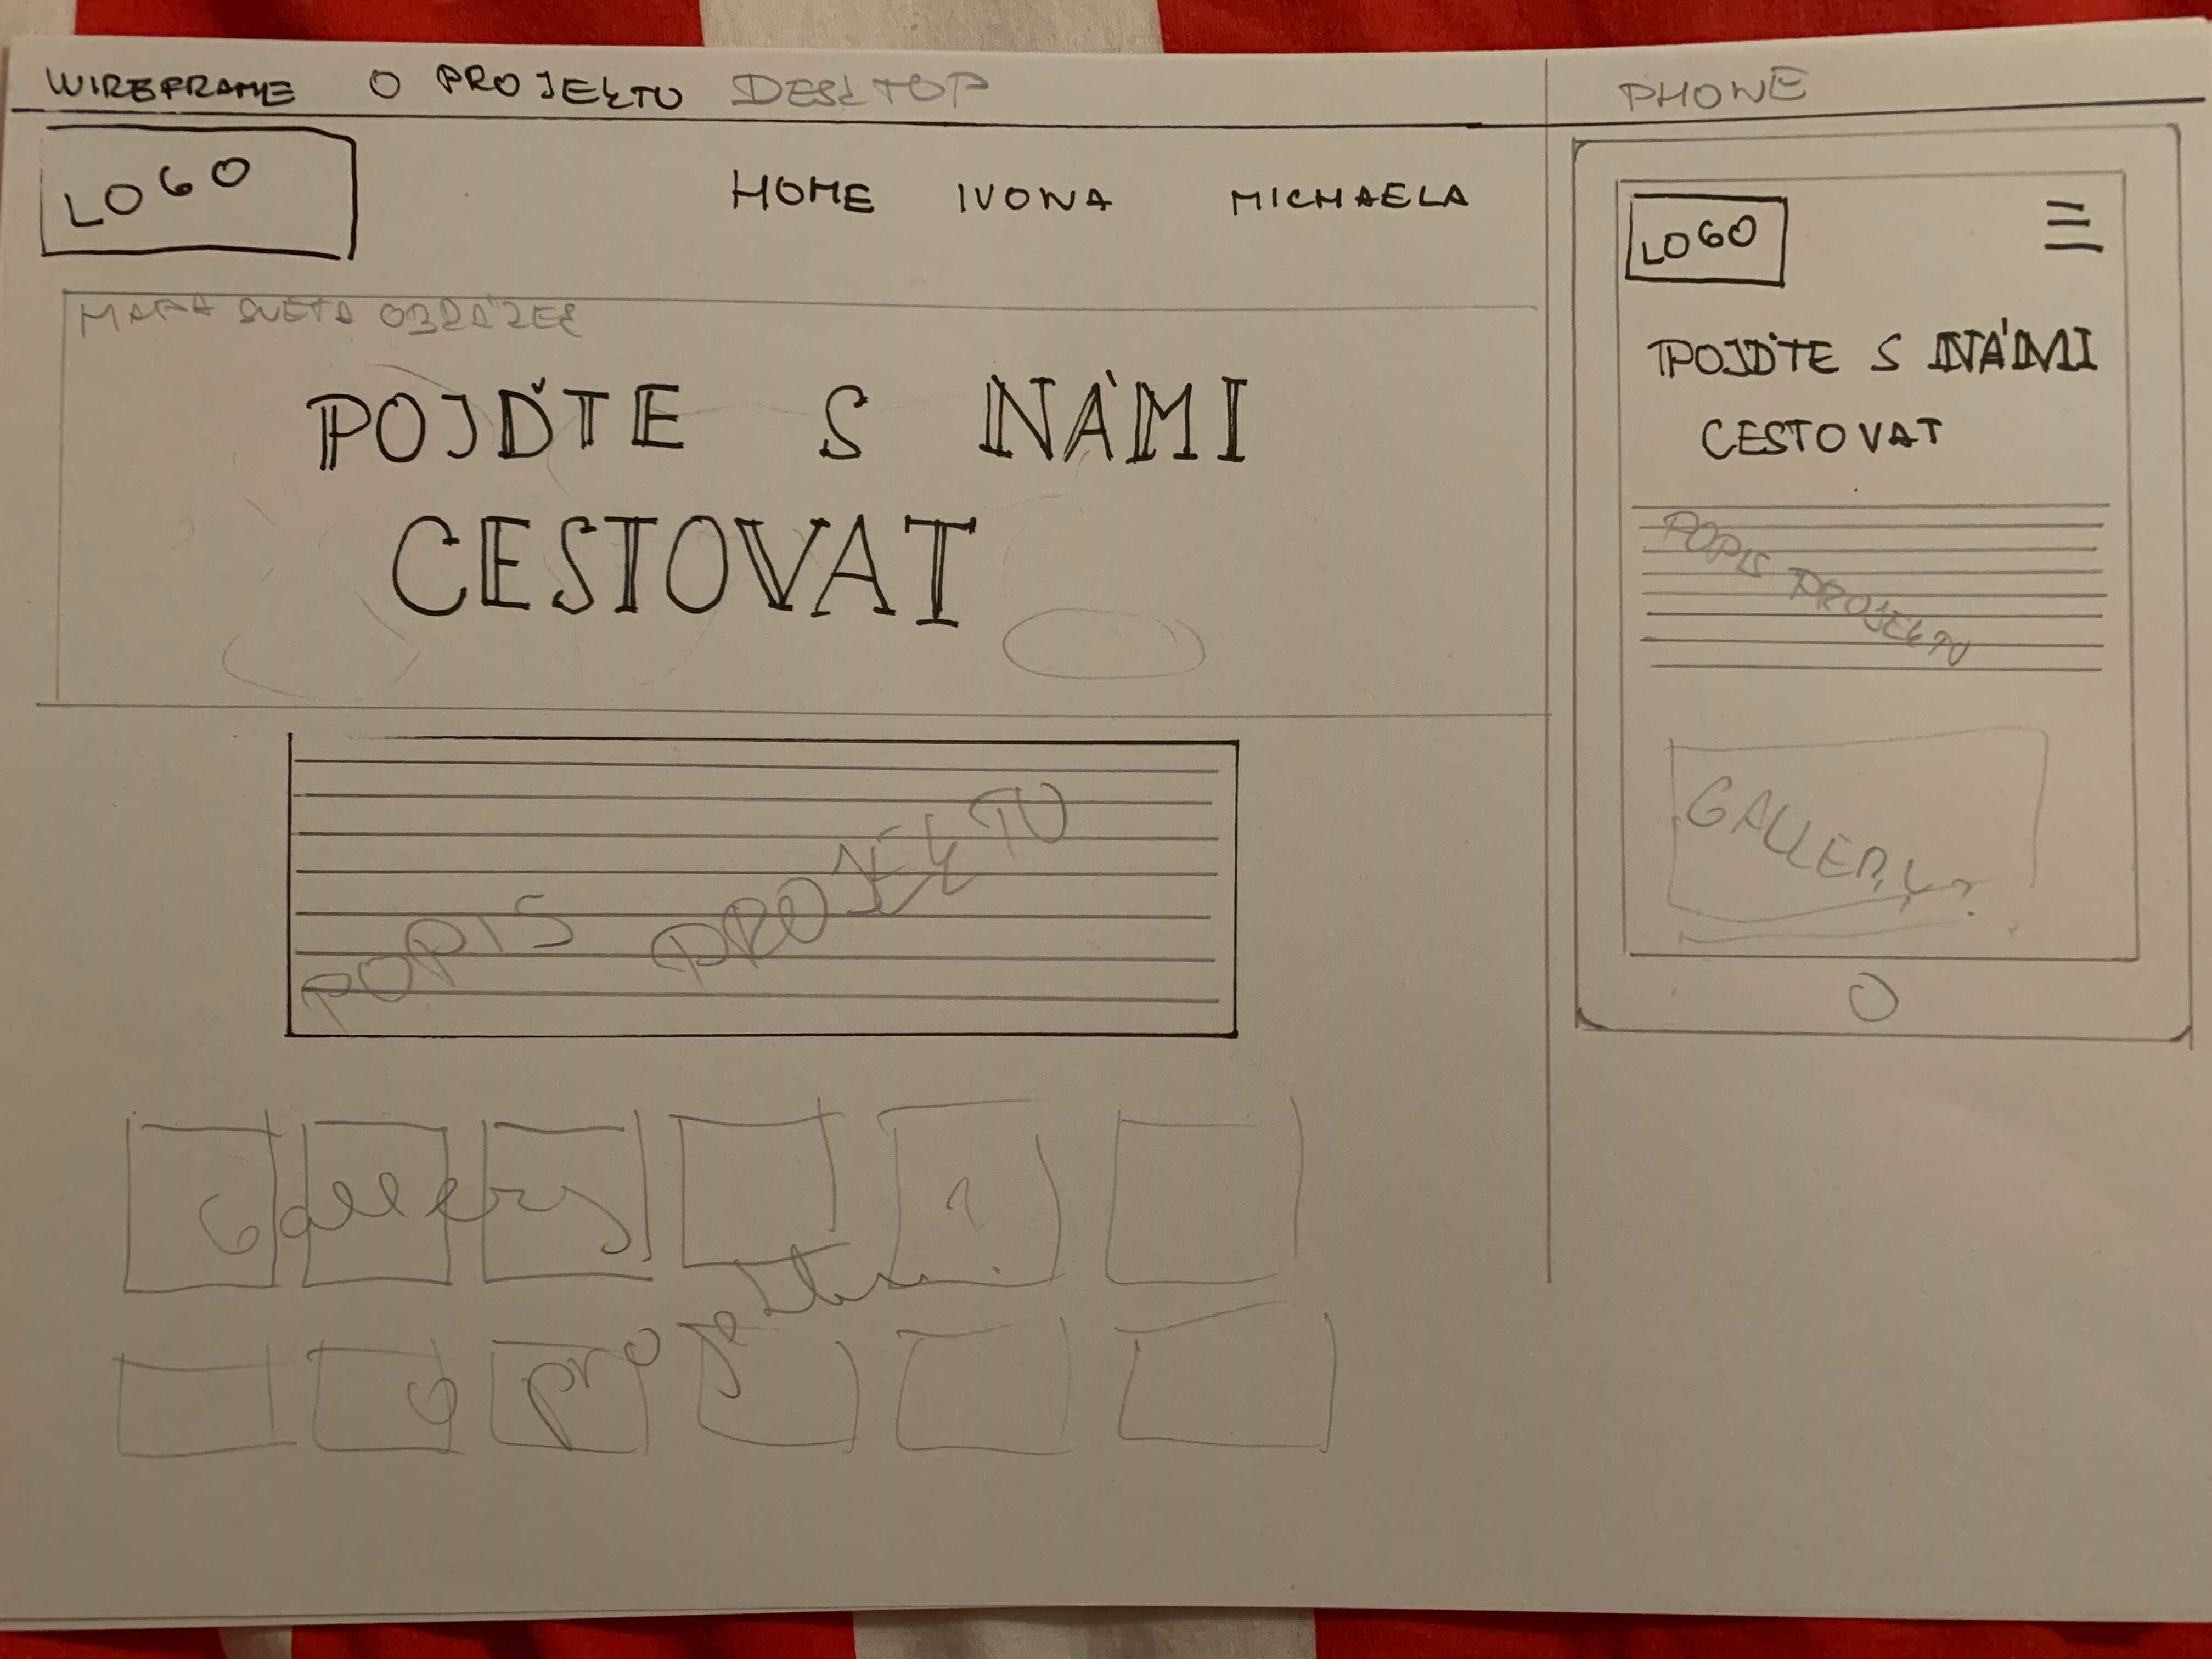 WIREFRAME O PROJEKTU DESKTOP
LOGO
HOME IVONA MICHAELA
MAPA SVĚTA OBRÁZEK
POJĎTE S NÁMI
CESTOVAT
POPIS PROJEKTU
Gallery ?
o projektu
PHONE
LOGO
POJĎTE S NÁMI
CESTOVAT
POPIS PROJEKTU
GALLERY?